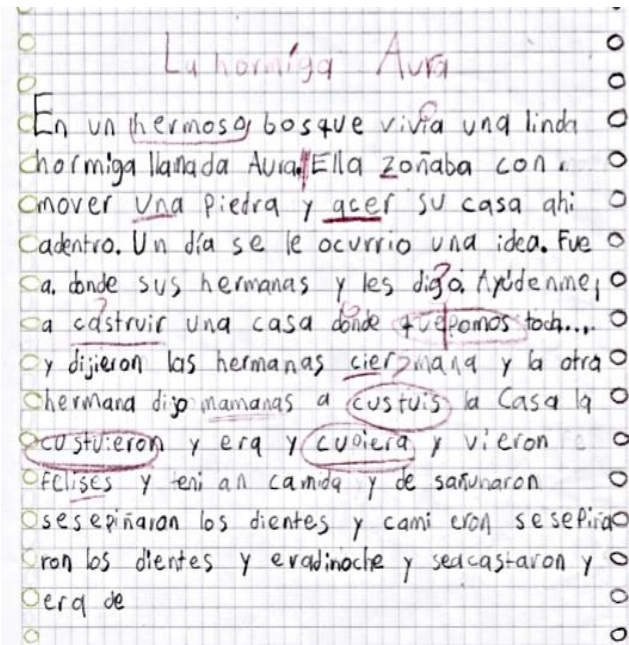 La hormiga Aura
En un hermoso bosque vivía una linda
hormiga llamada Aura. Ella zoñaba con
mover una piedra y acer su casa ahi
adentro. Un día se le ocurrio una idea. Fue
a donde sus hermanas y les digo: Ayúdenme
a castruir una casa donde quepamos toda...
y dijieron las hermanas cier mana y la otra
hermana dijo mamanas a custuis la casa la
custuieron y era y cupiera y vieron
felises y teni an camida y de sañunaron
sesepiñaron los dientes y cami eron sesepira
ron los dientes y eradinoche y seacastaron y
era de